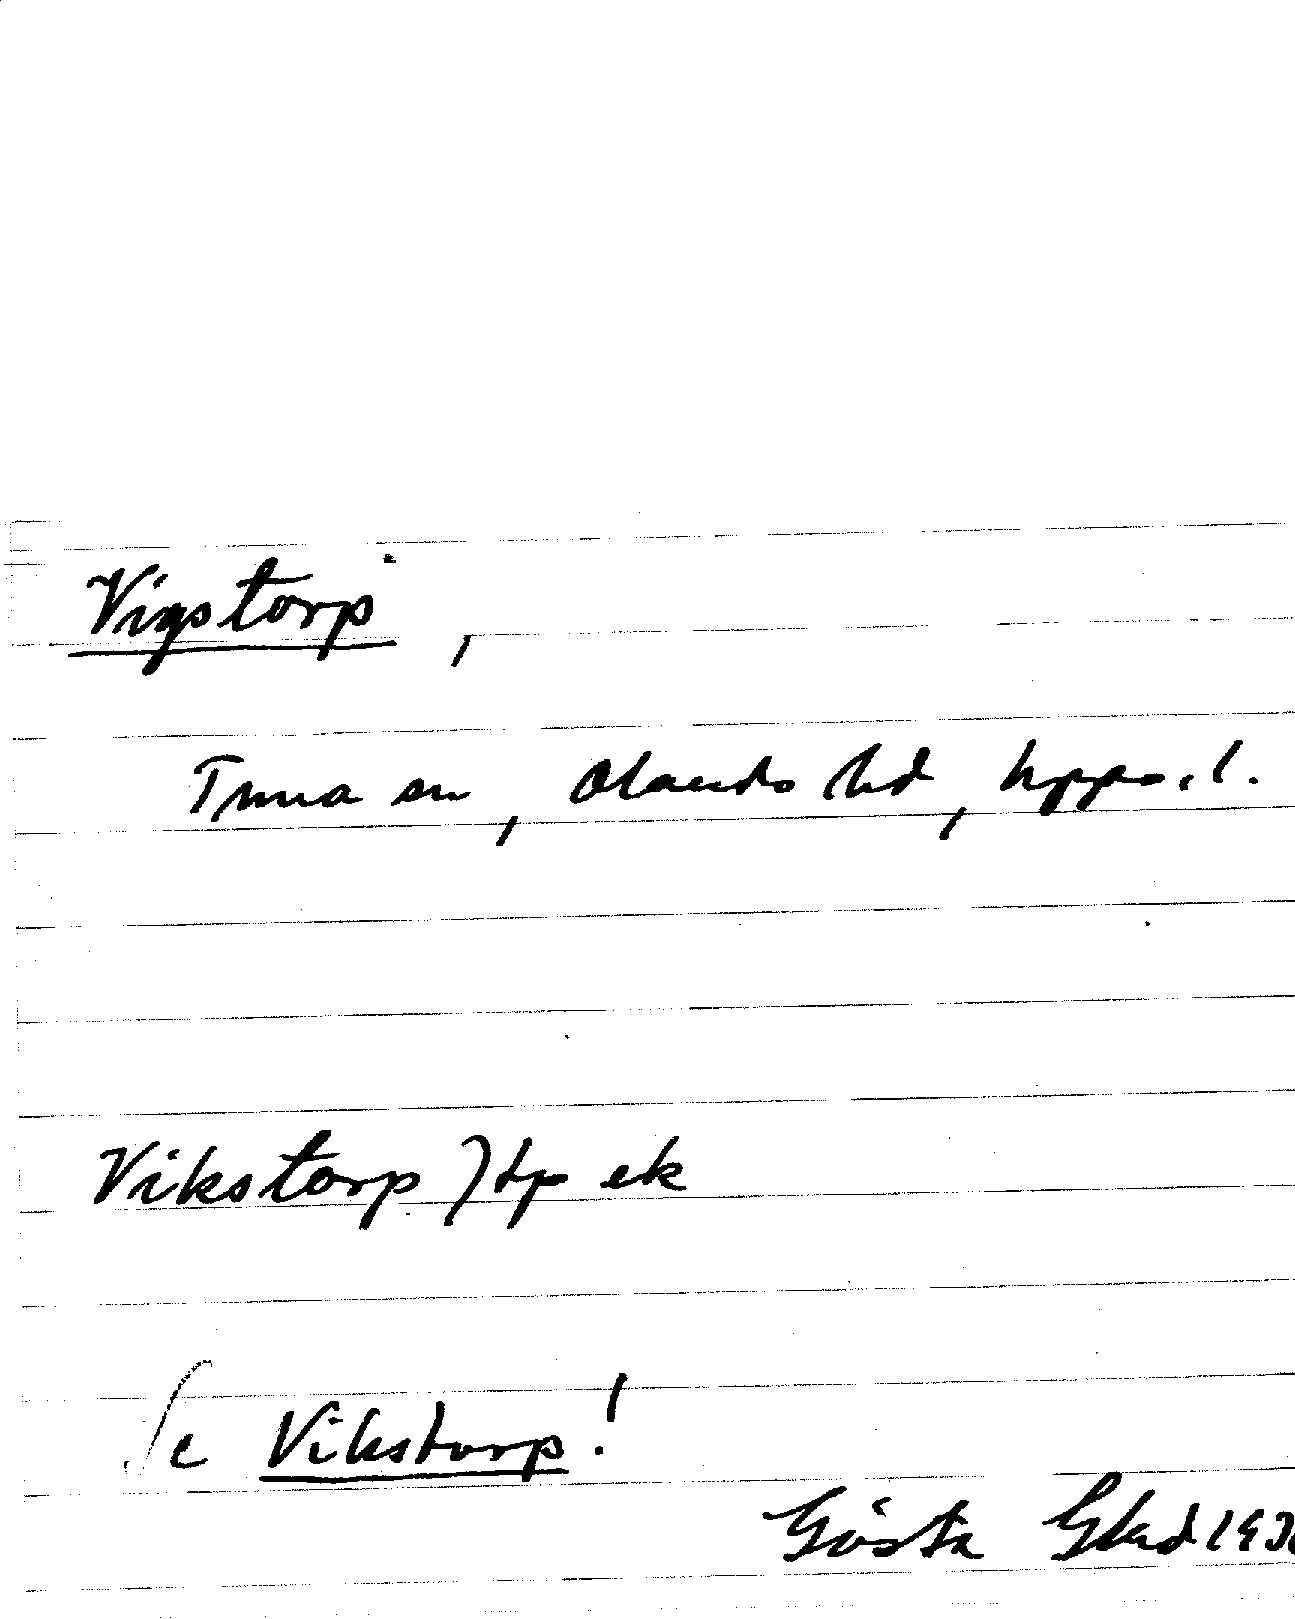 Vigstorp,
Tuna sn, Olands hd, Upps. l.
Vikstorp ) tp ek
Se Vikstorp!
Gösta Glad 193